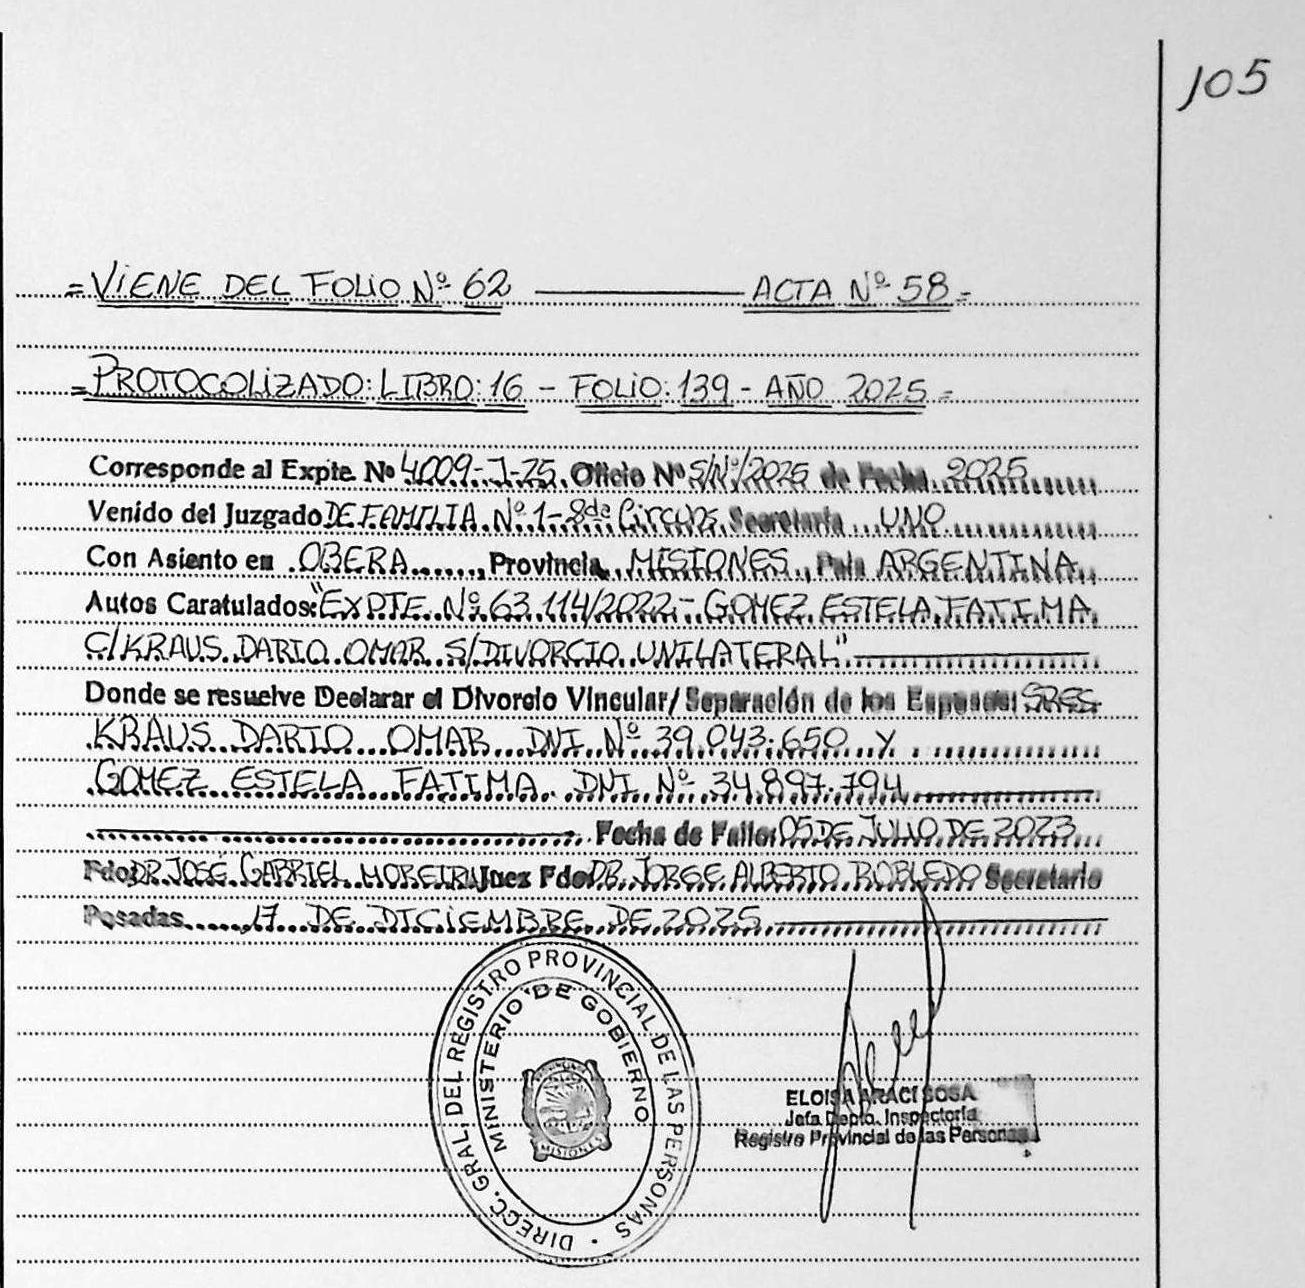 105
= VIENE DEL FOLIO Nº 62 ——— ACTA Nº 58 =
= PROTOCOLIZADO: LIBRO: 16 - FOLIO: 139 - AÑO 2025 =
Corresponde al Expte. Nº 4009-J-25. Oficio Nº S/Nº/2025 de Fecha 2025
Venido del Juzgado DE FAMILIA Nº 1-8da Circuns. Secretaria UNO
Con Asiento en OBERA, Provincia MISIONES, Pais ARGENTINA
Autos Caratulados: "EXPTE. Nº 63.114/2022 - GOMEZ ESTELA FATIMA
C/KRAUS DARIO OMAR S/DIVORCIO UNILATERAL"
Donde se resuelve Declarar el Divorcio Vincular/ Separación de los Esposos: SRES.
KRAUS DARIO OMAR DNI Nº 39.043.650 Y
GOMEZ ESTELA FATIMA. DNI Nº 34.897.794
Fecha de Fallo: 05 DE JULIO DE 2023
Fdo: DR. JOSE GABRIEL MOREIRA Juez Fdo DR. JORGE ALBERTO ROBLEDO Secretario
Posadas 17 DE DICIEMBRE DE 2025
DIRECC. GRAL. DEL REGISTRO PROVINCIAL DE LAS PERSONAS
MINISTERIO DE GOBIERNO
MISIONES
ELOISA ARACI SOSA
Jefa Depto. Inspectoria
Registro Provincial de las Personas